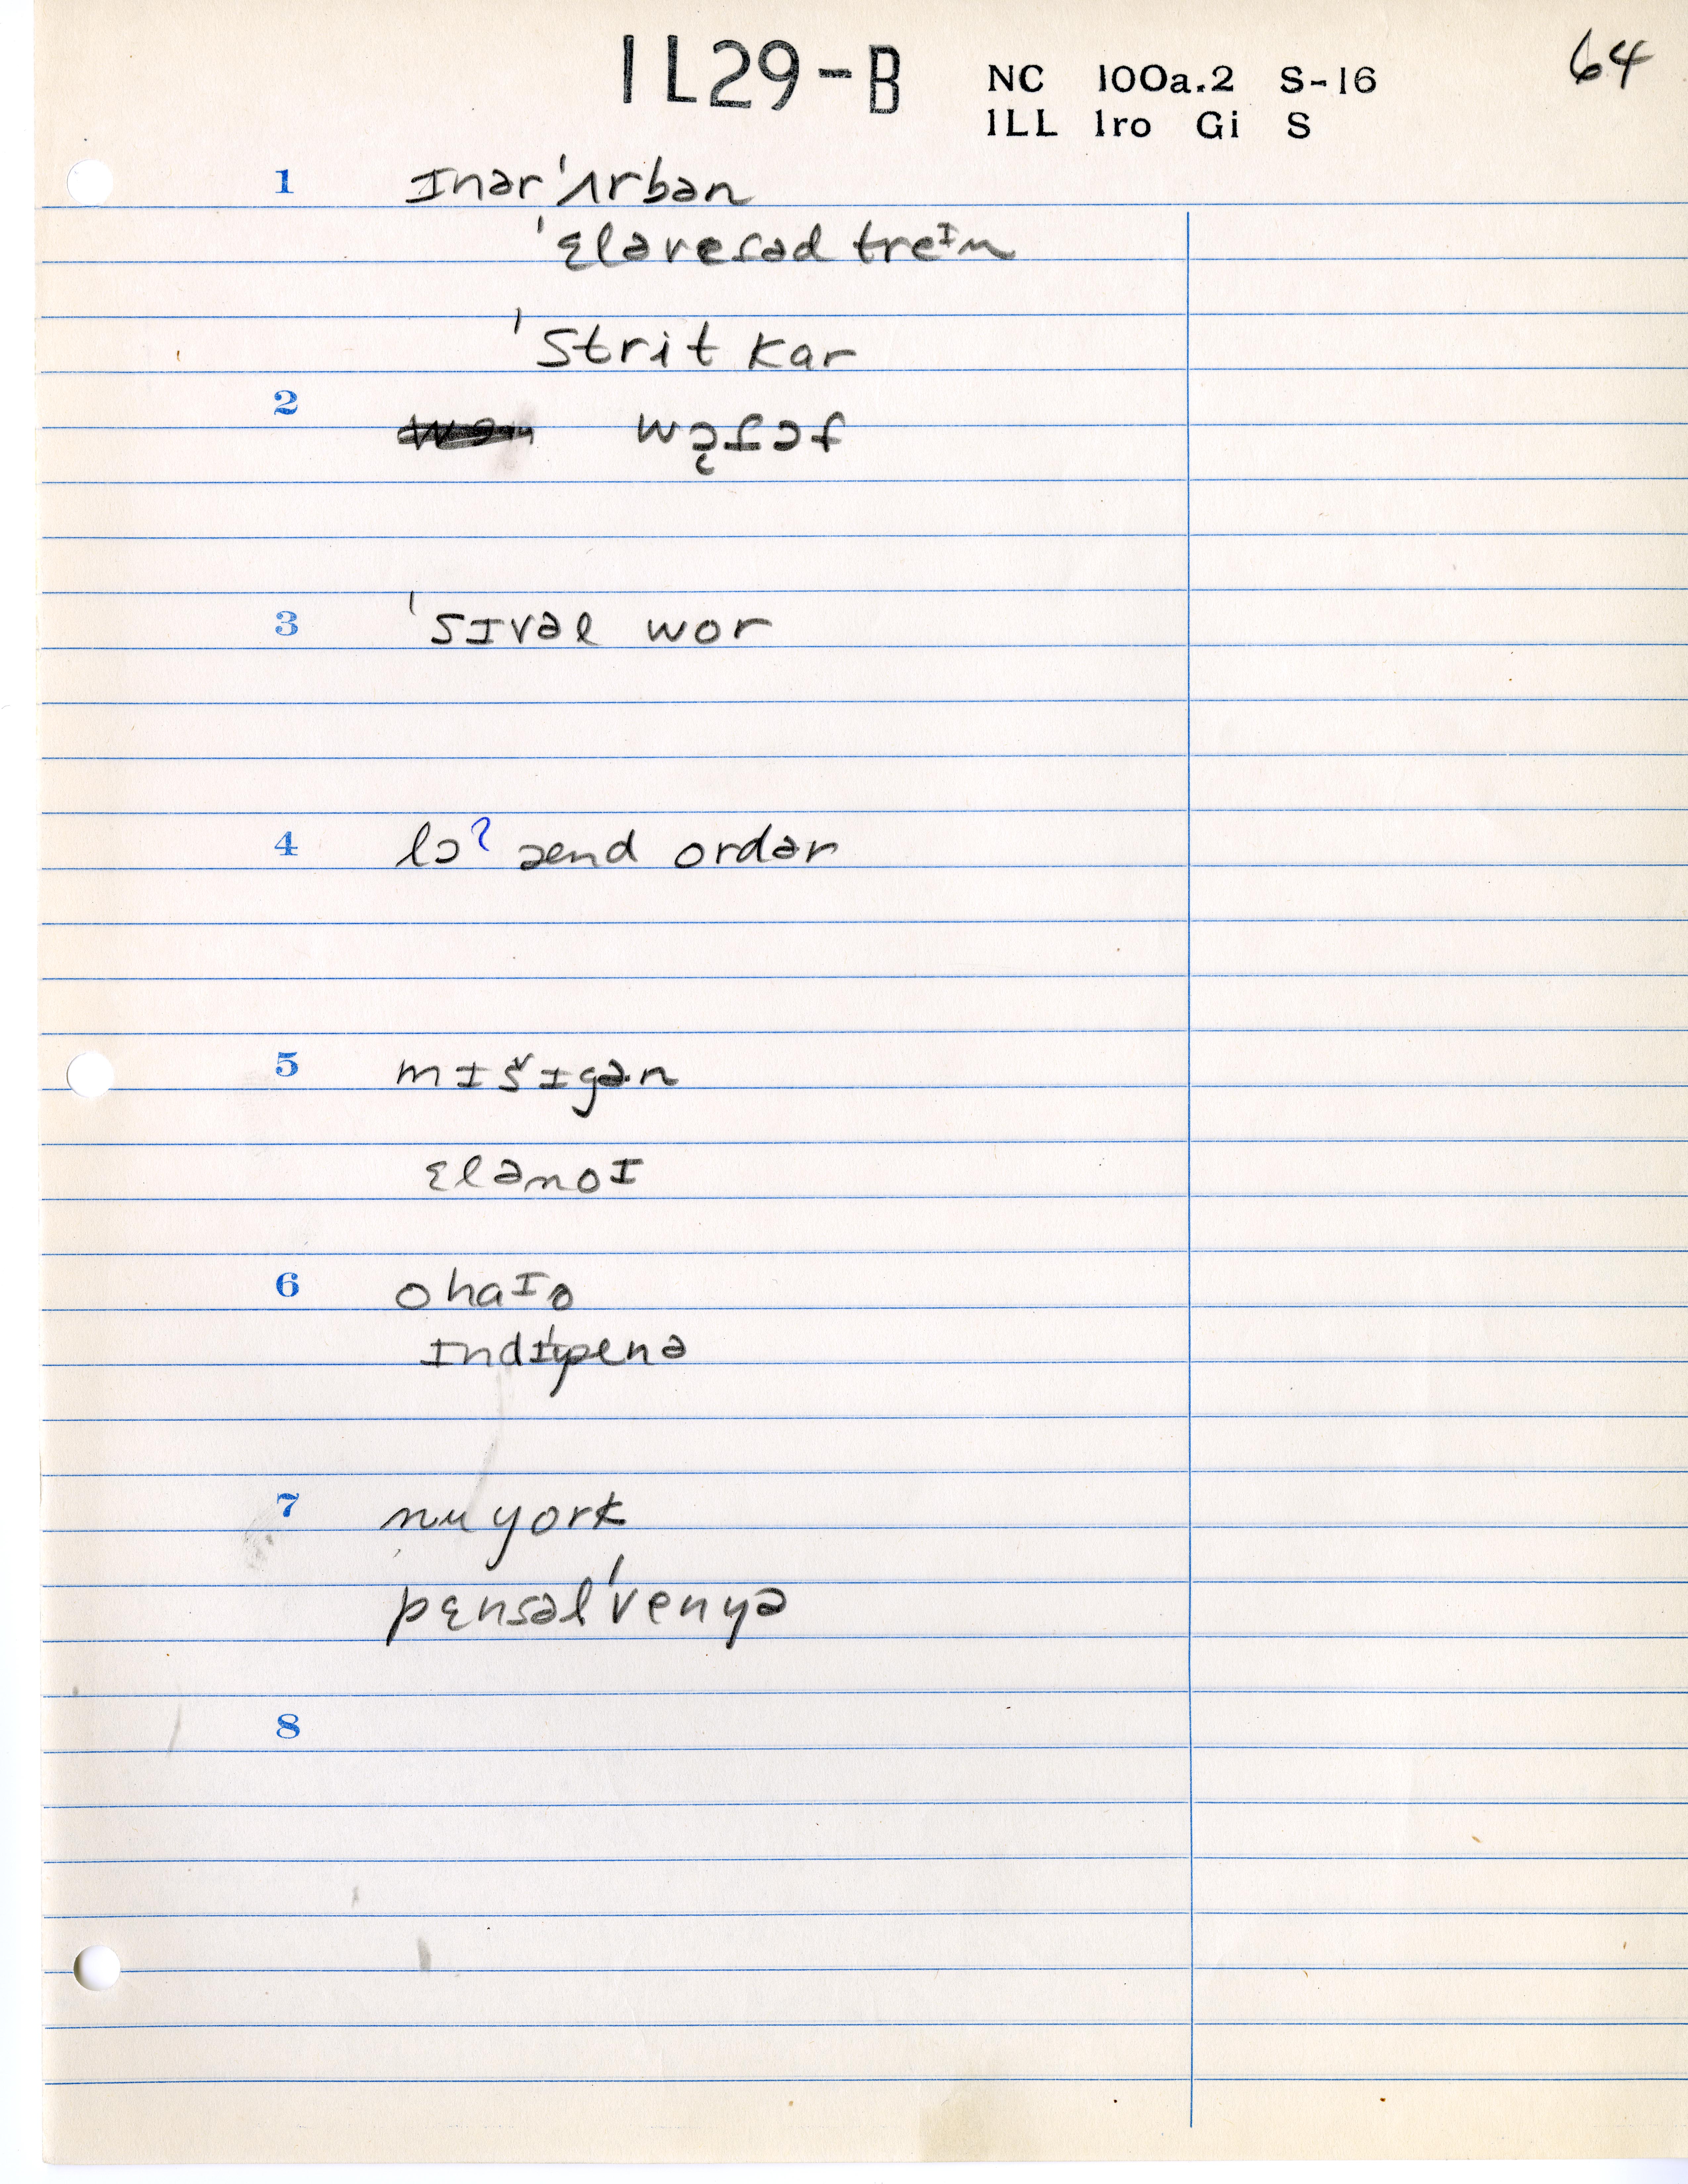 IL29-B
NC 100a.2 S-16
ILL Iro Gi S
64
1 ɪnərˈʌrbən
ˈɛləvesəd treᶦn
ˈstrit kar
2
3 ˈsɪvəl wor
4 lɔˀ ənd ordər
5 mɪšɪgən
ɛlənoɪ
6 ohaᶦo
7 nu york
pɛnsəlˈvenyə
8